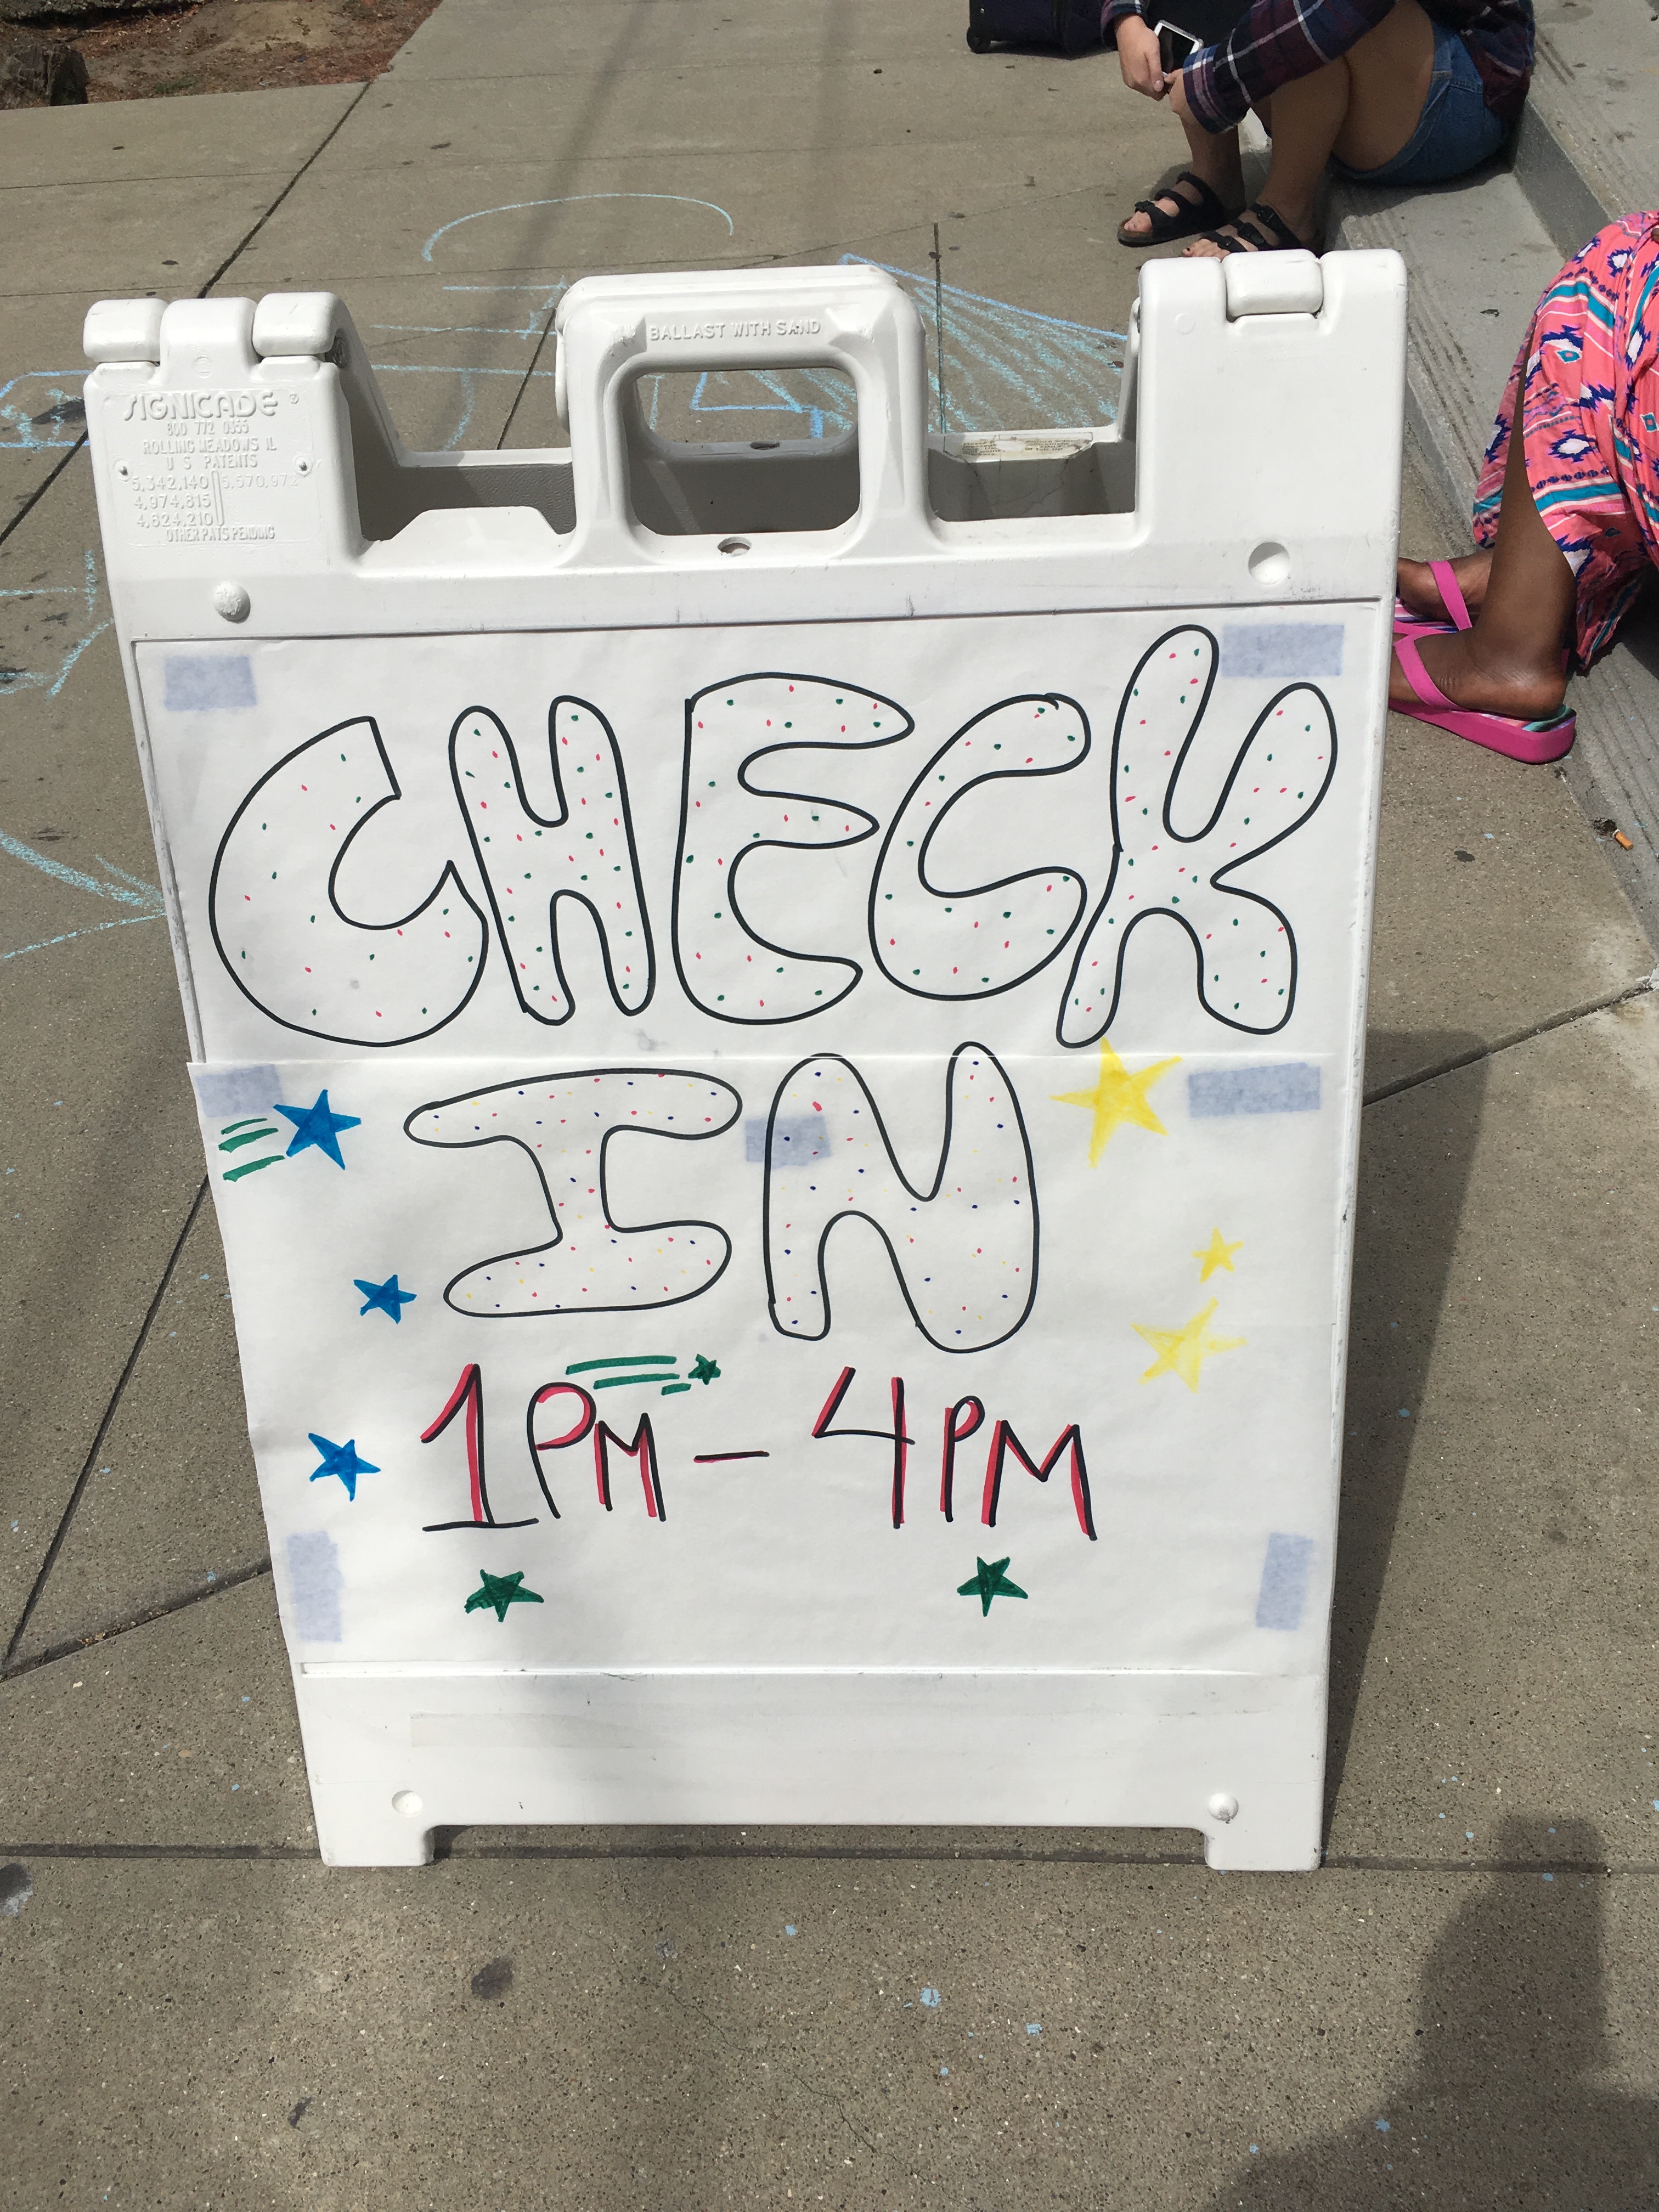 BALLAST WITH SAND
SIGNICADE ®
800 772 0355
ROLLING MEADOWS IL
U S PATENTS
5,342,140 5,570,972
4,974,815
4,624,210
OTHER PATS PENDING
CHECK
IN
1PM - 4PM